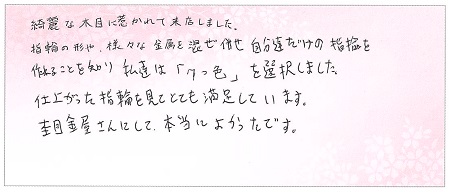 綺麗な木目に惹かれて来店しました。
指輪の形や、様々な金属を混ぜ併せ自分達だけの指輪を
作れることを知り私達は「7つ色」を選択しました。
仕上がった指輪を見てとても満足しています。
杢目金屋さんにして、本当によかったです。